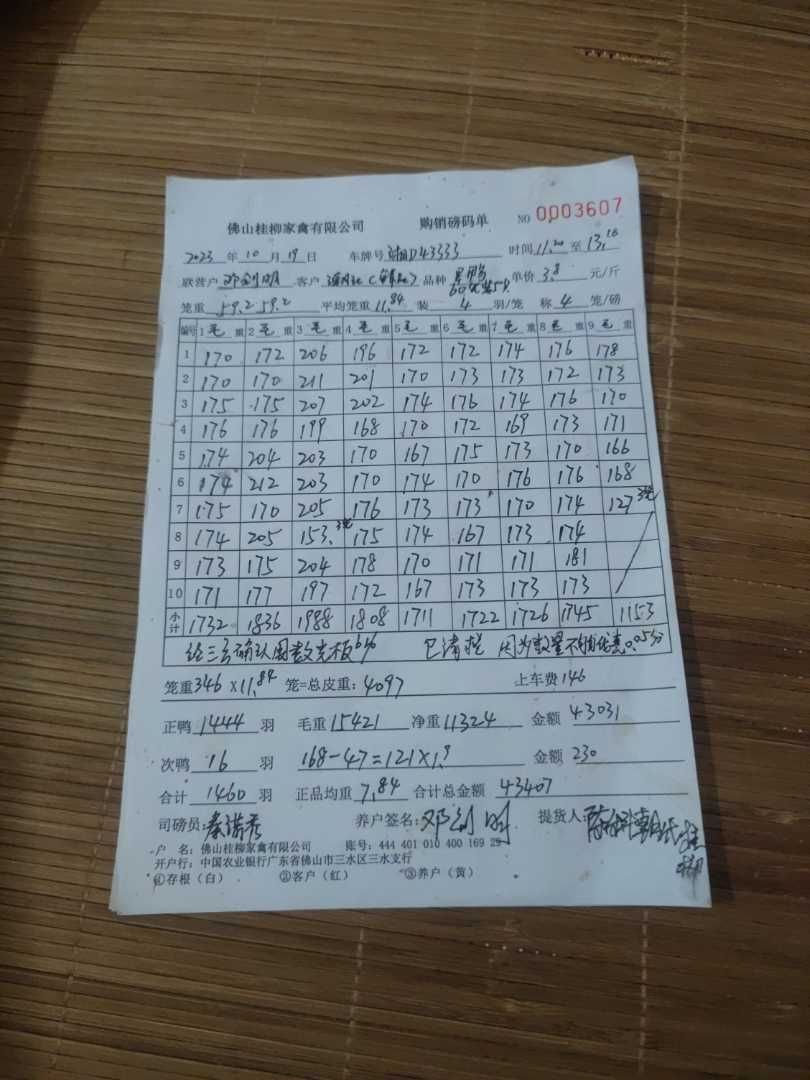 佛山桂柳家禽有限公司 购销磅码单 NO 0003607
2023 年 10 月 19 日 车牌号 D43333 时间 11.20 至 13.10
联营户 邓剑明 客户 品种 单价 3.8 元/斤
笼重 59.2 59.2 平均笼重 11.84 装 4 羽/笼 称 4 笼/磅
编号 1 毛 重 2 毛 重 3 毛 重 4 毛 重 5 毛 重 6 毛 重 7 毛 重 8 毛 重 9 毛 重
1 170 172 206 196 172 172 174 176 178
2 170 170 211 201 170 173 173 172 173
3 175 175 207 202 174 176 174 176 170
4 176 176 199 168 170 172 169 173 171
5 174 204 203 170 167 175 173 170 166
6 174 212 203 170 174 170 176 176 168
7 175 170 205 176 173 173 170 174 127 3笼
8 174 205 153 3笼 175 174 167 173 174
9 173 175 204 178 170 171 171 181
10 171 177 197 172 167 173 173 173
小计 1732 1836 1988 1808 1711 1722 1726 1745 1153
经三方确认 数 板 已清栏 数量不 优惠0.05分
笼重 346 x 11.84 笼=总皮重: 4097 上车费 146
正鸭 1444 羽 毛重 15421 净重 11324 金额 43031
次鸭 16 羽 168-47=121x1.9 金额 230
合计 1460 羽 正品均重 7.84 合计总金额 43407
司磅员: 养户签名: 邓剑明 提货人:
户 名: 佛山桂柳家禽有限公司 账号: 444 401 010 400 169 29
开户行: 中国农业银行广东省佛山市三水区三水支行
①存根(白) ②客户(红) ③养户(黄)